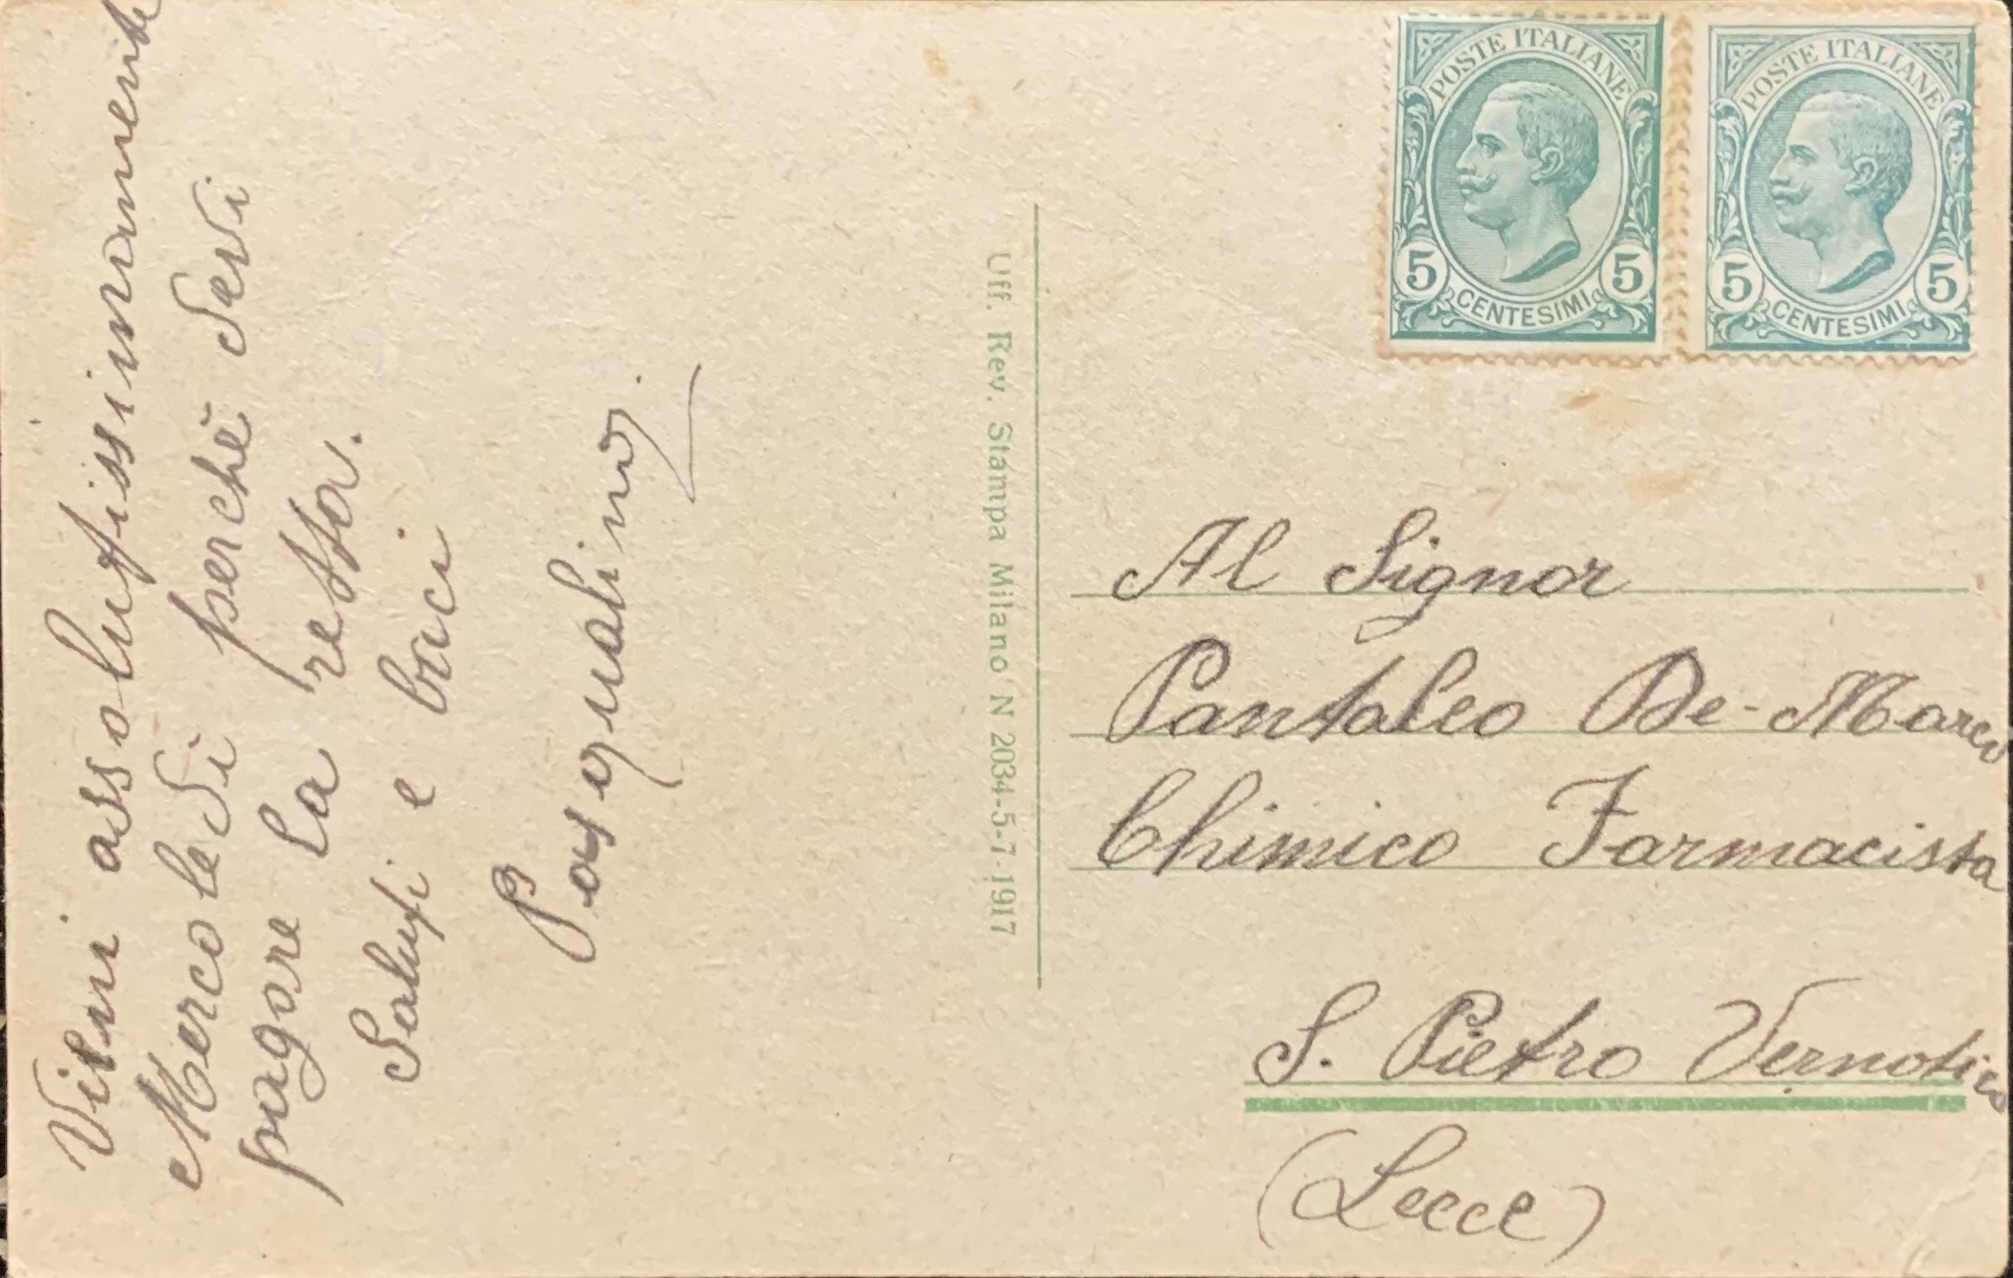 Vieni assolutissimamente
Mercoledì perchè devi
pagare la retta.
Saluti e baci
Pasqualino.
Uff. Rev. Stampa Milano N 2034-5-7-1917
POSTE ITALIANE
5 CENTESIMI 5
POSTE ITALIANE
5 CENTESIMI 5
Al Signor
Pantaleo De-Marco
Chimico Farmacista
S. Pietro Vernotico
(Lecce)